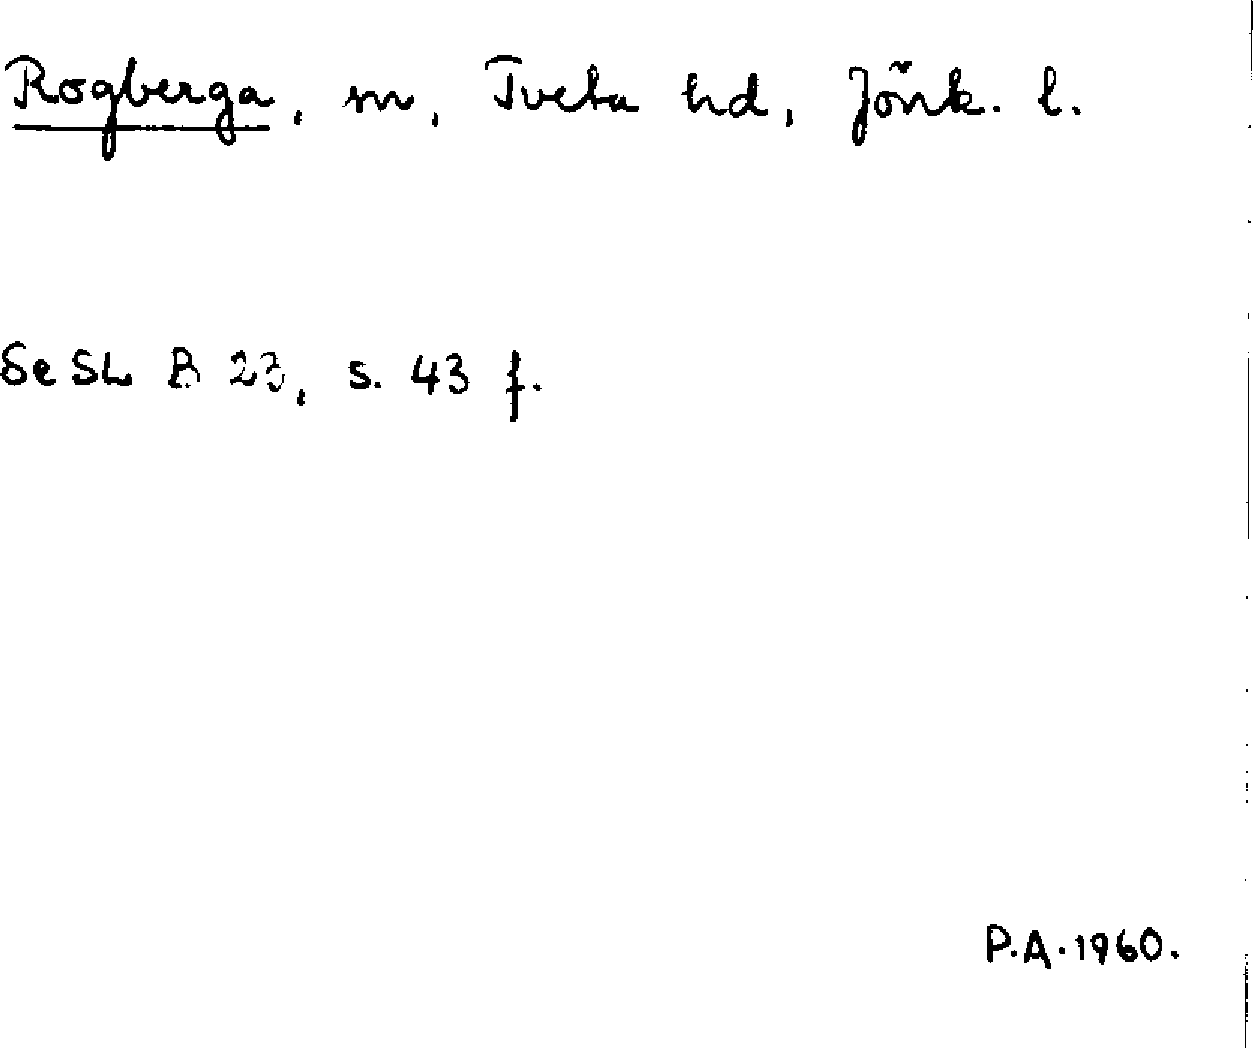 Rogberga, sn, Tveta hd, Jönk. l.
Se SL B 23, s. 43 f.
P.A. 1960.